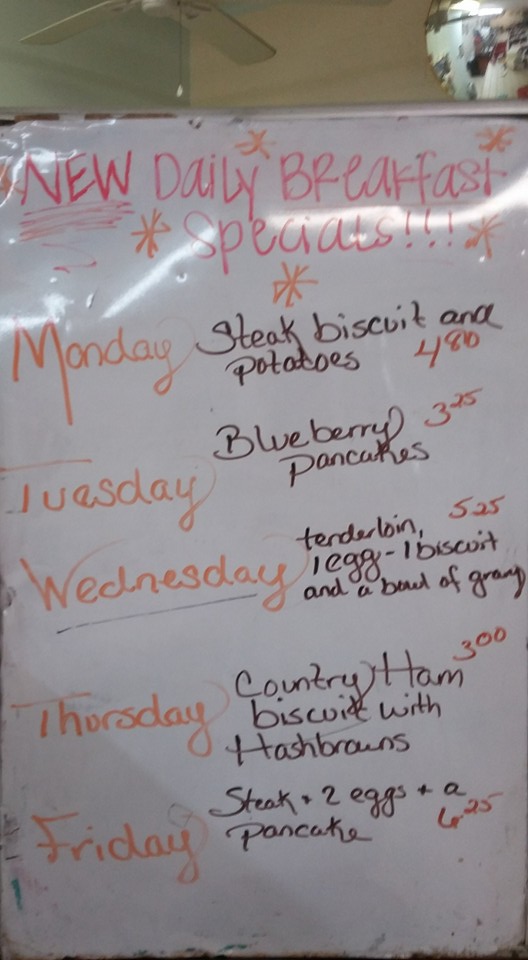 NEW Daily Breakfast
Specials!!!
Monday Steak biscuit and
potatoes 4 80
Blueberry 3 25
Tuesday pancakes
tenderloin, 5 25
Wednesday 1 egg - 1 biscuit
and a bowl of gravy
3 00
Country Ham
Thursday biscuit with
Hashbrowns
Steak + 2 eggs + a
Friday pancake 6 25